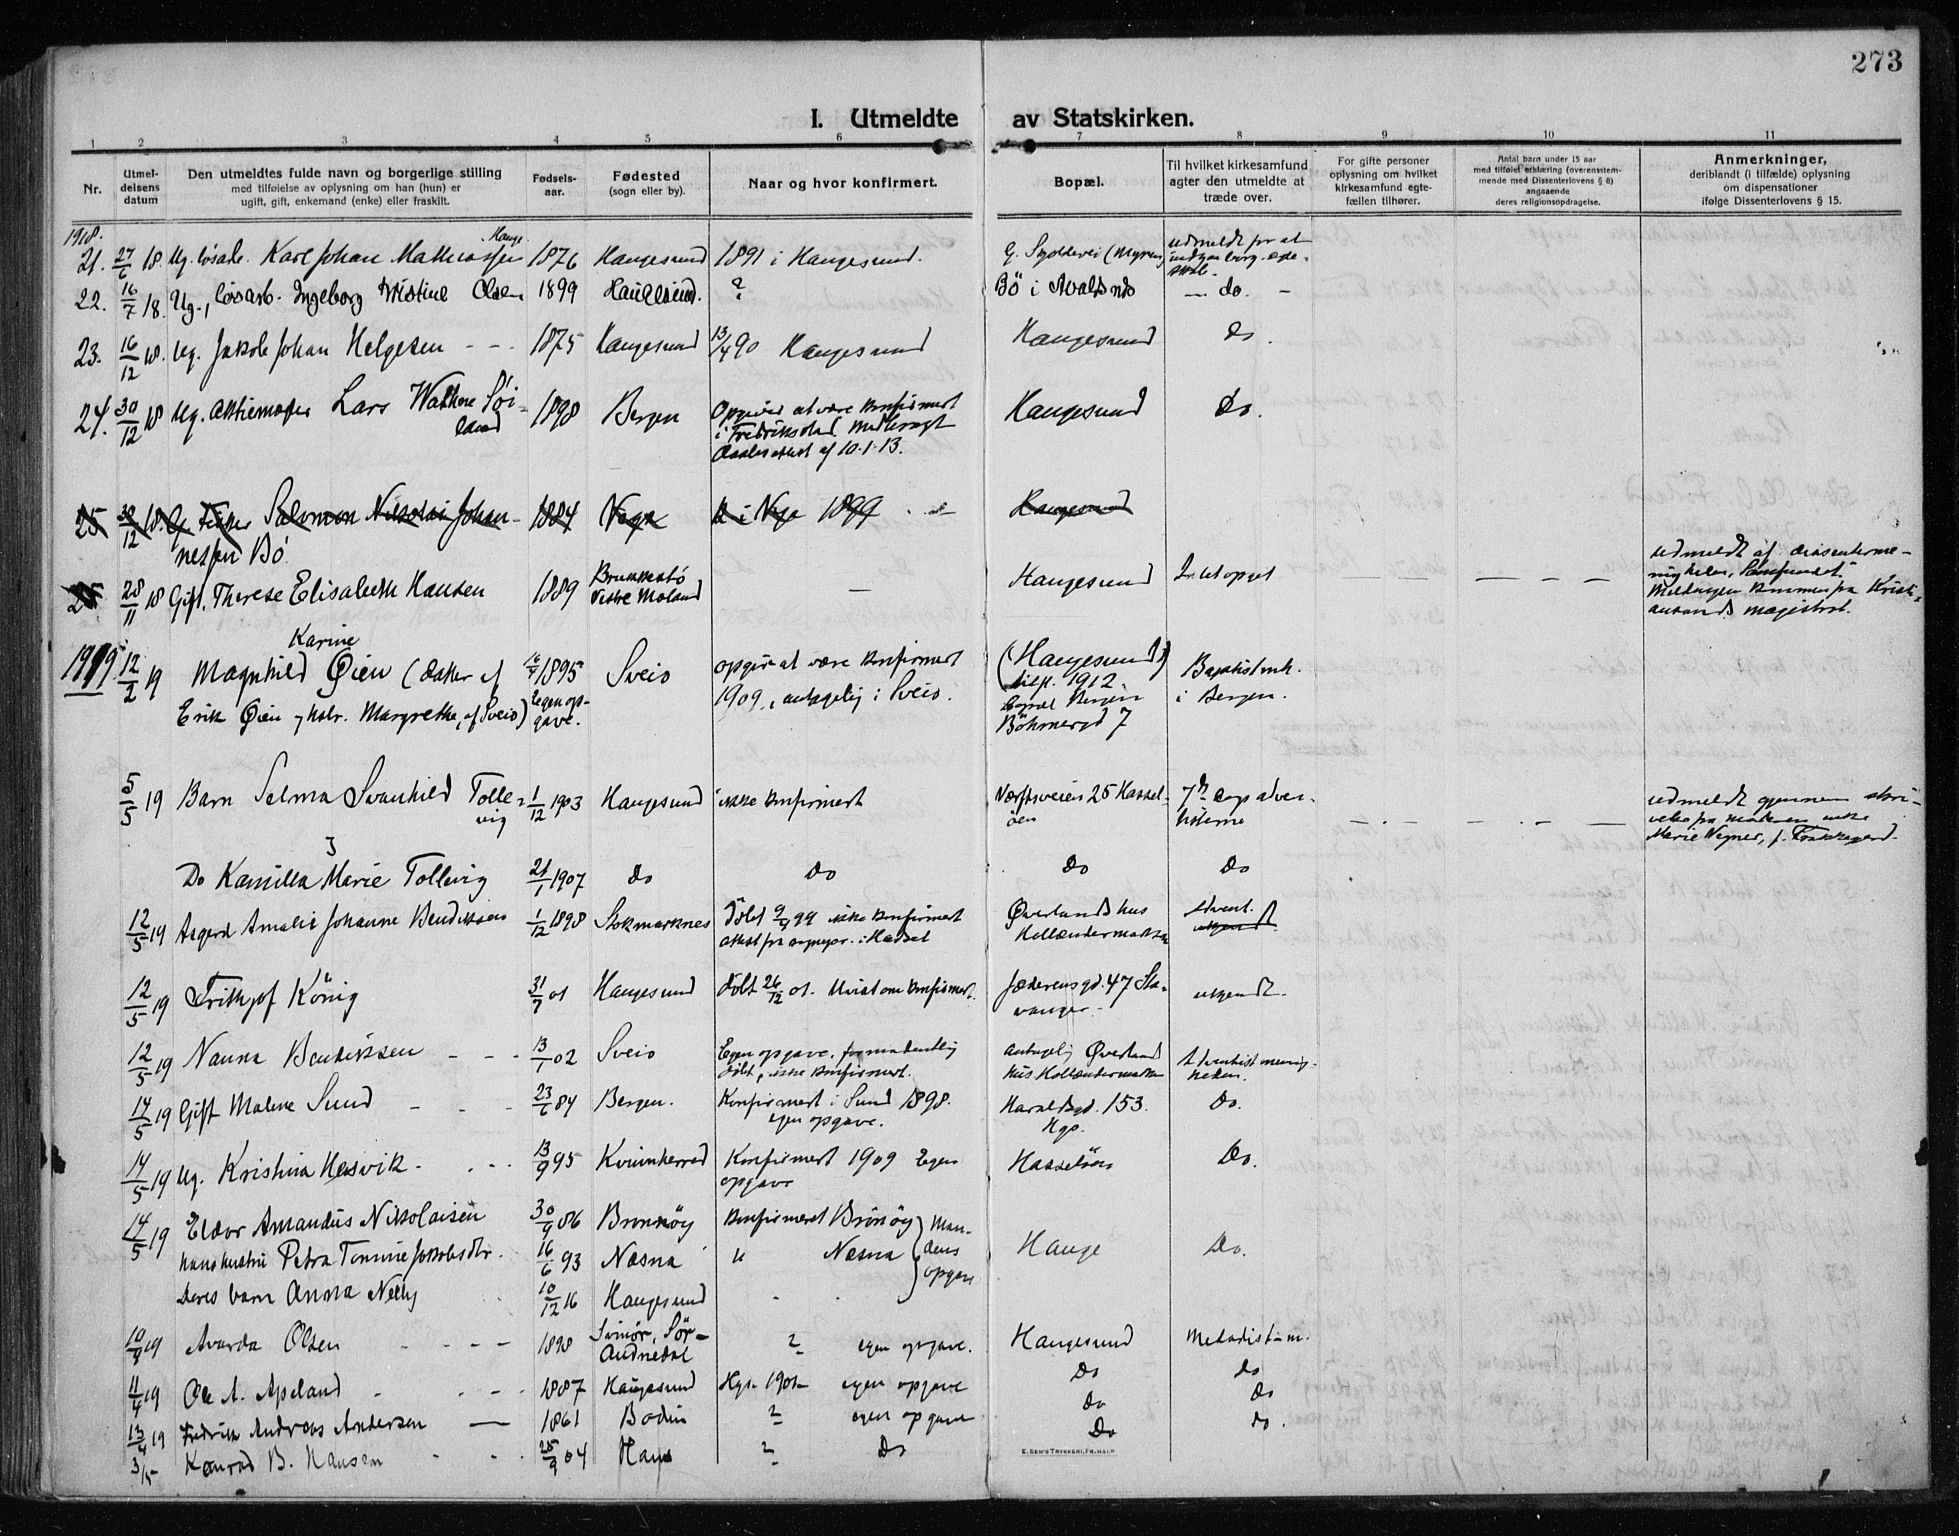 273
I. Utmeldte av Statskirken.
1 2 3 4 5 6 7 8 9 10 11
Nr.
Utmel-
delsens
datum
Den utmeldtes fulde navn og borgerlige stilling
med tilføielse av oplysning om han (hun) er
ugift, gift, enkemand (enke) eller fraskilt.
Fødsels-
aar.
Fødested
(sogn eller by).
Naar og hvor konfirmert.
Bopæl.
Til hvilket kirkesamfund
agter den utmeldte at
træde over.
For gifte personer
oplysning om hvilket
kirkesamfund egte-
fællen tilhører.
Antal barn under 15 aar
med tilføiet erklæring (overensstem-
mende med Dissenterlovens § 8)
angaaende
deres religionsopdragelse.
Anmerkninger,
deriblandt (i tilfælde) oplysning
om dispensationer
ifølge Dissenterlovens § 15.
1918.
21. 27/6 18. Ug. løsarb. Karl Johan 1876 Haugesund 1891 i Haugesund. udmeldt for at
indgaa borg. egte-
skab.
22. 16/7 18. Ug., løsarb. Ingeborg Kristine Olsen 1899 Haugesund. ? Bö i Avaldsnes — do. —
23. 16/12 18. Ug. Jakob Johan Helgesen - - 1875 Haugesund 13/4 90 Haugesund Haugesund do.
24. 30/12 18 Ug. Lars Söi-
land 1898 Bergen Opgives at være konfirmert
i Fredriksstad. Medbragt
daabsattest af 10.1.13. Haugesund Do.
25 30/12 18. G. Fisker Salomon Nikolai Johan-
nessen Bö 1884 Vega K i Vega 1899 Haugesund
25 28/11 18 Gift. Therese Elisabeth Hansen 1889
Vestre Moland — Haugesund Intet opget — — — —
udmeldt af dissenterme-
nigheden, "Samfundet".
Meldingen kommer fra Kristi-
ansands magistrat.
1919. 12/2 19 Magnhild Karine Øien (datter af
Erik Øien og hstr. Margrethe, af Sveio) 1895
Egen op-
gave. Sveio opgir at være konfirmert
1909, antagelig i Sveio. (Haugesund)
tilfl. 1912.
Bopæl Bergen
Böhmergd 7 Baptistmh.
i Bergen.
5/5 19 Barn Selma Svanhild Tolle-
vig 1/12 1903 Haugesund ikke konfirmert Værftsveien 25 Hassel-
öen 7de dags adven-
tisterne — — — —
udmeldt gjennem skri-
velse fra moderen enke
Marie Vegner, f.
Do Kamilla Marie Tollevig 21/1 1907 do Do Do Do
12/5 19 Asgerd Amalie Johanne Bendiksen 1/12 1898 Stokmarknes Döbt 9/4 99 ikke konfirmert
attest fra sognepr. i Hassel Øverlands hus
Hollændermarken Advent.
ukjendt
12/5 19 Frithjof König 31/7 01 Haugesund döbt 26/12 01. Uvist om konfirmert. Jæderensgd. 47 Sta-
vanger. ukjendt.
12/5 19 Nanna Bendiksen - - - 13/1 02 Sveio Egen opgave. formodentlig
döbt, ikke konfirmert. antagelig Øverland
hus Hollændermarken Adventistmenig-
heden.
14/5 19 Gift Malene Sund - - - 23/6 84 Bergen. Konfirmert i Sund 1898.
egen opgave. Haraldsgd. 153.
Hgs. Do.
14/5 19 Ug. Kristina Hesvik - . . - 13/9 95 Kvinnherred Konfirmert 1909 Egen
opgave Hasselöen Do.
14/5 19 Eldor Amandus Nikolaisen 30/9 86 Brönnöy konfirmeret Brönöy
hans hustru Petra Tomine Jakobsdtr. 16/6 93 Næsna " Næsna
} Man-
dens
opgave Hauge Do.
deres barn Anna Nelly 10/12 16 Haugesund
19 Avarda Olsen - - - 1898 Svinör, Sör-
Audnedal ? egen opgave. Haugesund Metodist-m.
11/4 19 Ole A. Apeland - - - - 1887 Haugesund Hgs. 1901 egen opgave Do do
13/4 19 Fredrik Andreas Andersen — 1861 Bodin ? egen opgave do do
3/5 Konrad B. Hansen - - 25/9 04 Haug ? Do Do do.
E. SEM'S TRYKKERI, FR.HALD